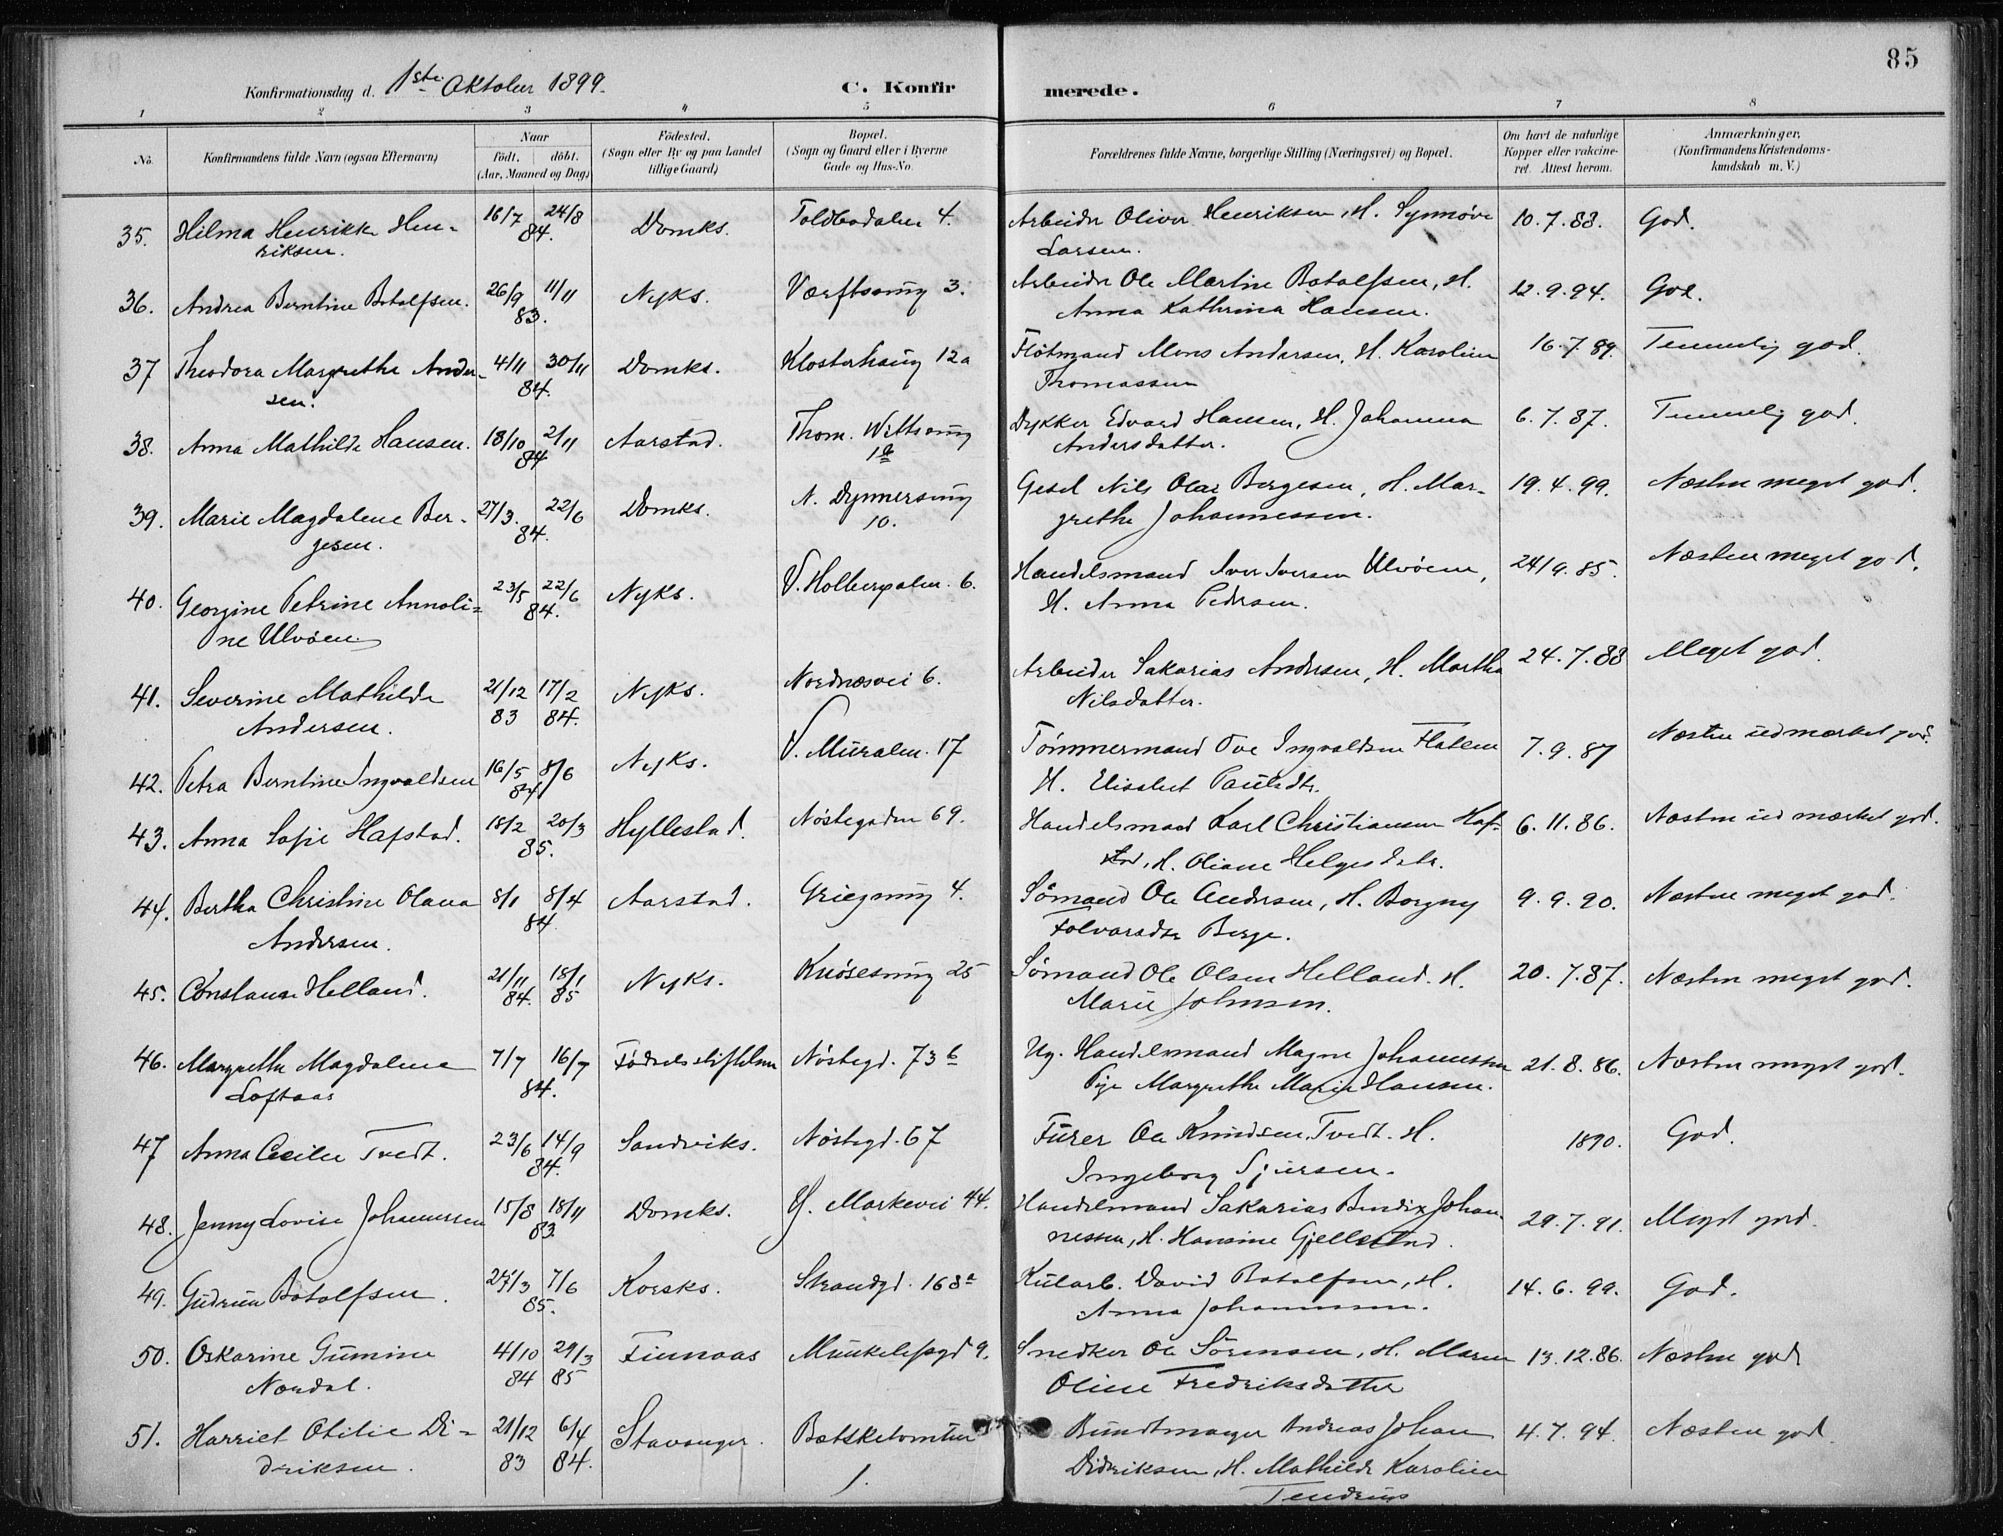 85
Konfirmationsdag d. 1ste Oktober 1899.
C. Konfirmerede.
1 2 3 4 5 6 7 8
No.
Konfirmandens fulde Navn (ogsaa Efternavn)
Naar
födt. döbt.
(Aar, Maaned og Dag)
Födested.
(Sogn eller By og paa Landet
tillige Gaard)
Bopæl.
(Sogn og Gaard eller i Byerne
Gade og Hus-No.
Forældrenes fulde Navne, borgerlige Stilling (Næringsvei) og Bopæl.
Om havt de naturlige
Kopper eller vakcine-
ret. Attest herom.
Anmærkninger.
(Konfirmandens Kristendoms-
kundskab m. V.)
35. Hilma Henrikke Hen- 16/7 24/8 Domks. Toldbodalm 4. Arbeider Oliver Henriksen, H. Synnøve 10.7.88. God.
riksen. 84. Larsen.
36. Andrea Berntine Botolfsen. 26/9 11/11 Nyks. Værftssmug 3. Arbeider Ole Martin Botolfsen, H. 12.9.94. God.
83. Anna Kathrina Hansen.
37 Theodora Margrethe Ander- 4/11 30/11 Domks. Klosterhaug 12a Fløtmand Mons Andersen, H. Karoline 16.7.89. Temmelig god.
sen. 84. Thomassen
38. Anna Mathilde Hansen. 18/10 2/11 Aarstad. Thom. Wittsmug Dykker Edvard Hansen, H. Johanna 6.7.87. Temmelig god.
84 Andersdatter.
39. Marie Magdalene Ber- 27/3. 22/6 Domks. N. Dynnersmug Gesel Nils Olai Bergesen, H. Mar- 19.4.99. Næsten meget god.
gesen. 84. 10. grethe Johannessen.
40. Georgine Petrine Annoli- 23/5 22/6 Nyks. V. Holbergsalm. 6. Handelsmand Iver Iversen Ulvøen, 24/9.85. Næsten meget god.
ne Ulvøen. 84. H. Anna Pedersen.
41. Severine Mathilde 21/12 17/2 Nyks. Nordnæsvei 6. Arbeider Sakarias Andersen, H. Martha 24.7.88 Meget god.
Andersen. 83 84. Nilsdatter.
42. Petra Berntine Ingvaldsen 16/5 8/6 Nyks. V. Muralm. 17 Tømmermand Ove Ingvaldsen Fløtem 7.9.87 Næsten udmærket god.
84 H. Elisabet Paulsdtr.
43. Anna Sofie Hafstad. 18/2 20/3 Hyllestad. Nøstegaden 69. Handelsmand Karl Christiansen Haf- 6.11.86. Næsten udmærket god.
85. stad, H. Oliane Helgesdatr.
44. Bertha Christine Olava 8/1 8/4 Aarstad. Griegsmug 4. Sømand Ole Andersen, H. Borgny 9.9.90. Næsten meget god.
Andersen. 84. Folvarsdtr Berge.
45. Constanse Helland. 21/11 18/1 Nyks. Knøsesmug 25 Sømand Ole Olsen Helland. H. 20.7.87. Næsten meget god.
84. 85 Marie Johnsen.
46. Margrethe Magdalena 7/7 16/7 Fødselsstiftelsen Nøstegd. 73b Ug. Handelsmand Magne Johannessen 21.8.86. Næsten meget god.
Loftaas 84. Pige Margrethe Marie Hansen.
47 Anna Cecilie Tvedt. 23/6 14/9 Sandviks. Nøstegd. 67 Furer Ole Knudsen Tvedt. H. 1890. God.
84. Ingeborg Sjursen.
48. Jenny Lovise Johannessen 15/8 18/11 Domks. Markevei 44. Handelsmand Sakarias Bendix Johan- 29.7.91. Meget god.
83. nessen, H. Hansine Gjellestad.
49. Gudrun Botolfsen. 27/3 7/6 Korsks. Strandgd. 168a Kularb. David Botolfsen, H. 14.6.99. God.
85. Anna Johannessen.
50. Oskarine Gumine 4/10 29/3 Finnaas Munkelivsgd 9. Snedker Ole Sörensen, H. Maren 13.12.86. Næsten god
Nordal. 84 85 Oline Fredriksdatter
51. Harriet Otilie Di- 21/12 6/4 Stavanger. Batsketomten Buntmager Andreas Johan 4.7.94. Næsten god.
driksen. 83 84. 1. Didriksen, H. Mathilde Karoline